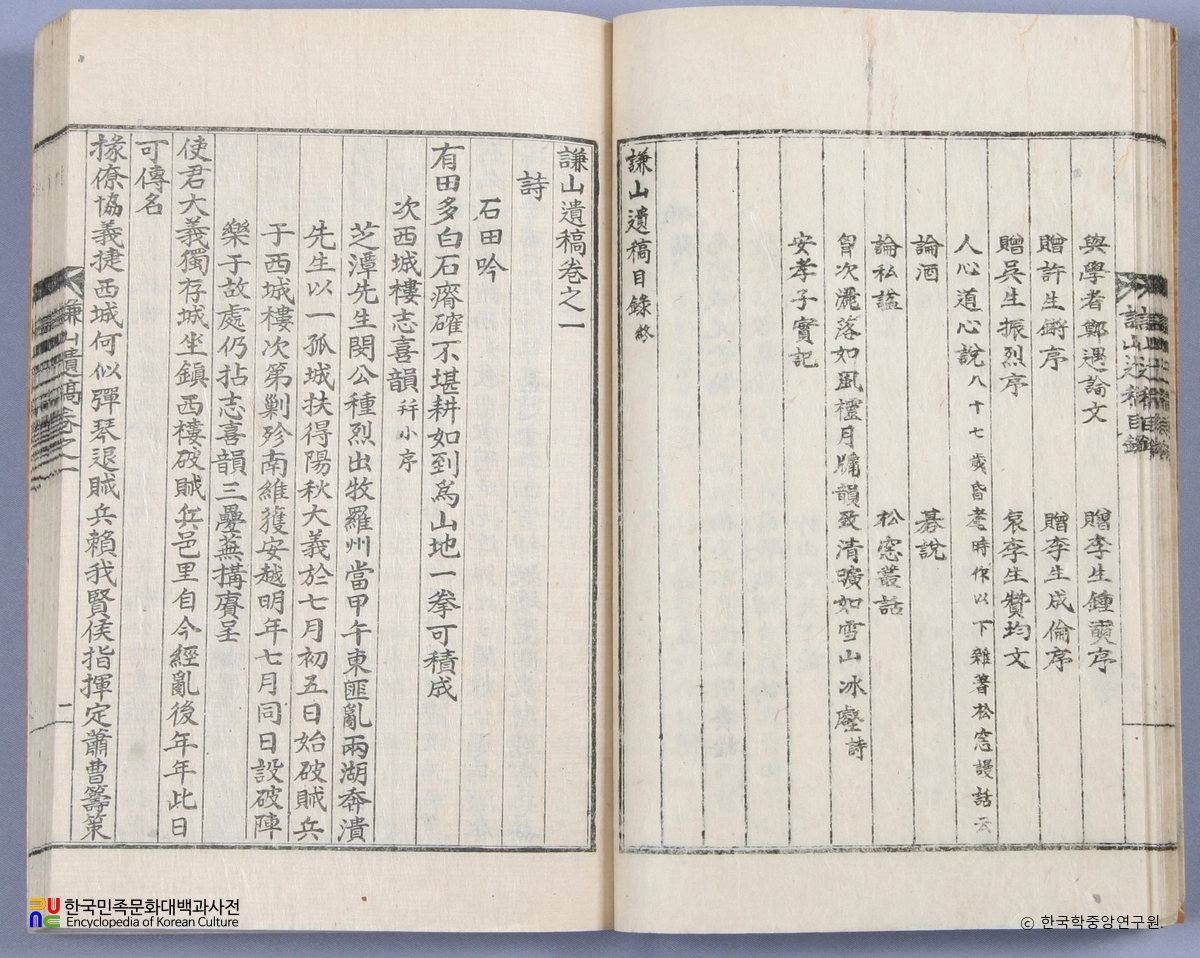 謙山遺稿目錄
與學者鄭遇論文 贈李生鍾奭序
贈許生㒇序 贈李生成倫序
贈吳生振烈序 哀李生贊均文
人心道心說八十七歲昏耄時作以下雜著松窓謾話云
論酒 碁說
論私謚 松窓叢話
胷次灑落如風櫺月牖韻致淸曠如雪山冰壑詩
安孝子實記
謙山遺稿目錄終
謙山遺稿卷之一
詩
石田吟
有田多白石瘠確不堪耕如到爲山地一拳可積成
次西城樓志喜韻幷小序
芝潭先生閔公種烈出牧羅州當甲午東匪亂兩湖奔潰
先生以一孤城扶得陽秋大義於七月初五日始破賊兵
于西城樓次第剿殄南維獲安越明年七月同日設破陣
樂于故處仍拈志喜韻三疊蕪搆賡呈
使君大義獨存城坐鎭西樓破賊兵邑里自今經亂後年年此日
可傳名
掾僚協義捷西城何似彈琴退賊兵賴我賢侯指揮定蕭曹籌策
謙山遺稿卷之一
一
한국민족문화대백과사전
Encyclopedia of Korean Culture
© 한국학중앙연구원.